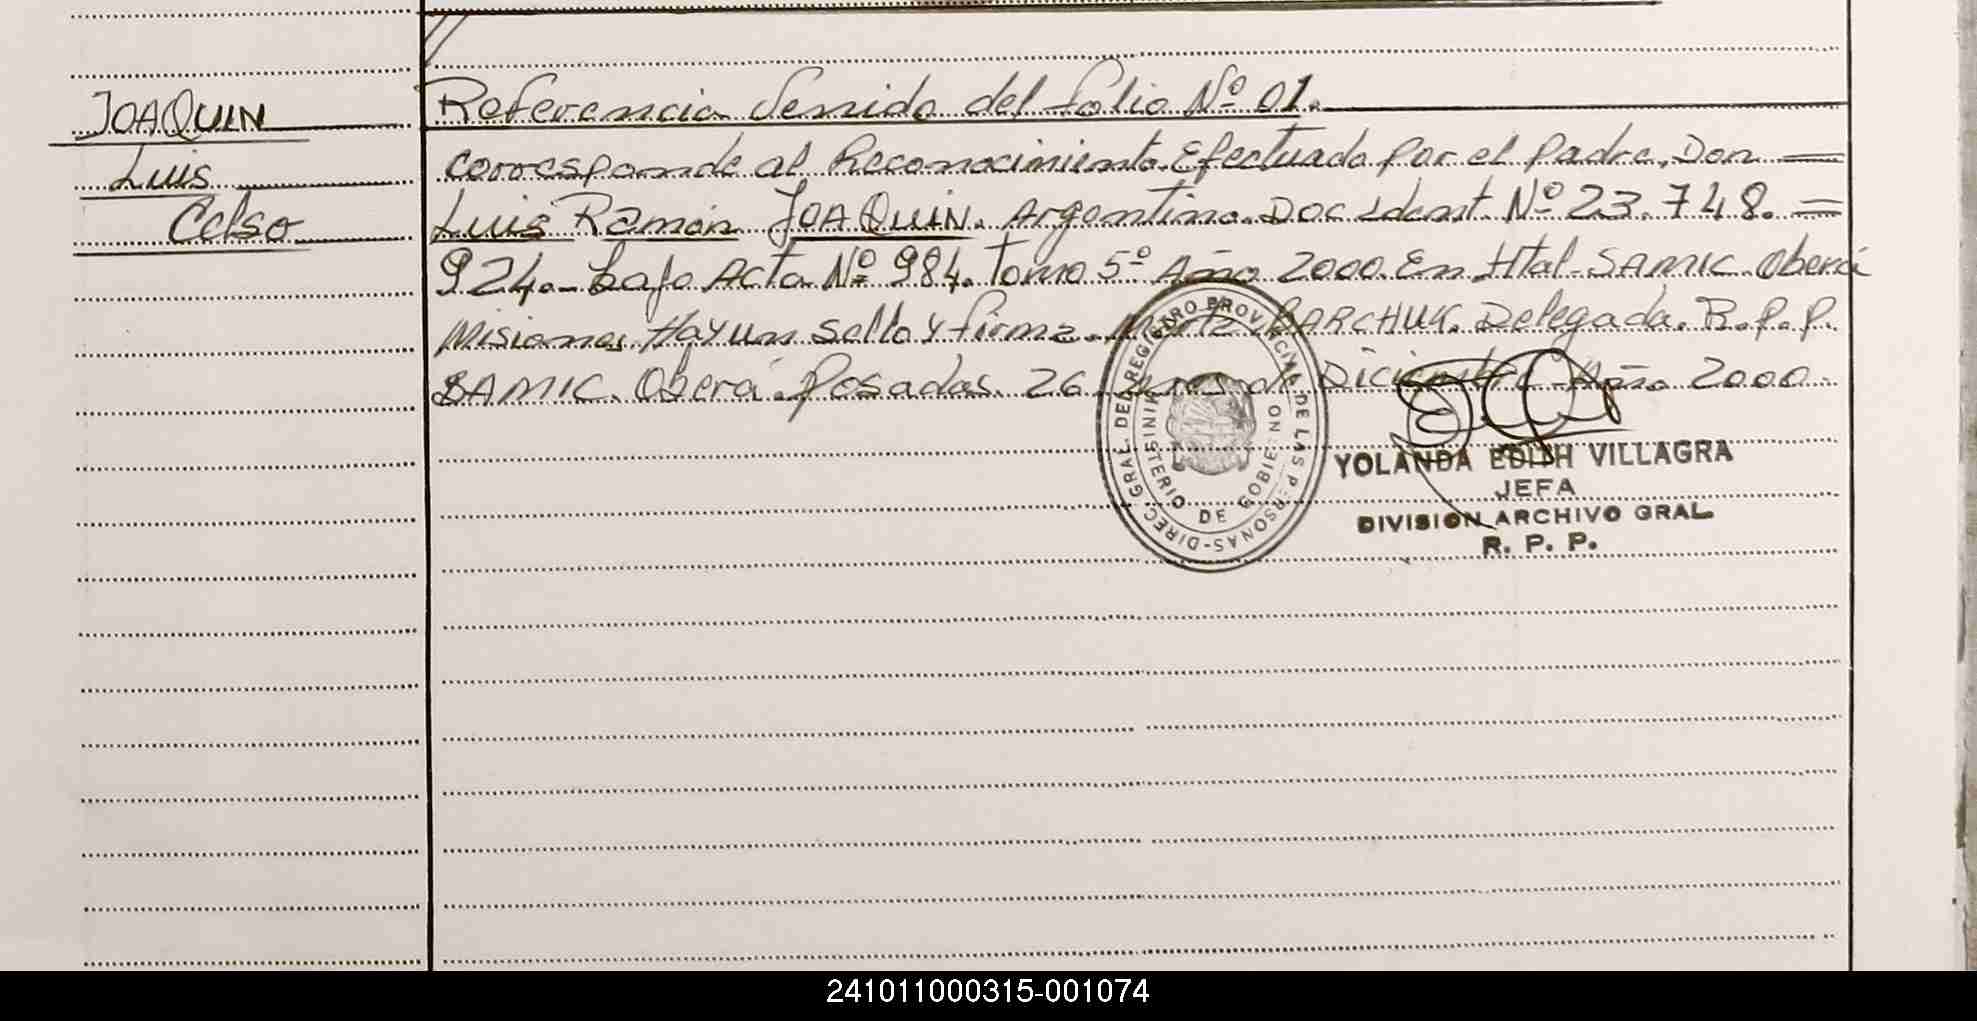 JOAQUIN
Luis
Celso
Referencia Servido del folio Nº 01.
Corresponde al Reconocimiento Efectuado por el padre, Don
Luis Ramón JOAQUIN. Argentino. Doc Ident. Nº 23.748.
924.- bajo Acta Nº 984. Tomo 5º Año 2000. En Htal-SAMIC. Oberá
Misiones. Hay un sello y firma. BARCHUK. Delegada. R.P.P.
SAMIC. Oberá. Posadas. 26 de Diciembre Año 2000.
DIREC. GRAL. DEL REGISTRO PROVINCIAL DE LAS PERSONAS
MINISTERIO DE GOBIERNO
YOLANDA EDITH VILLAGRA
JEFA
DIVISION ARCHIVO GRAL.
R. P. P.
241011000315-001074